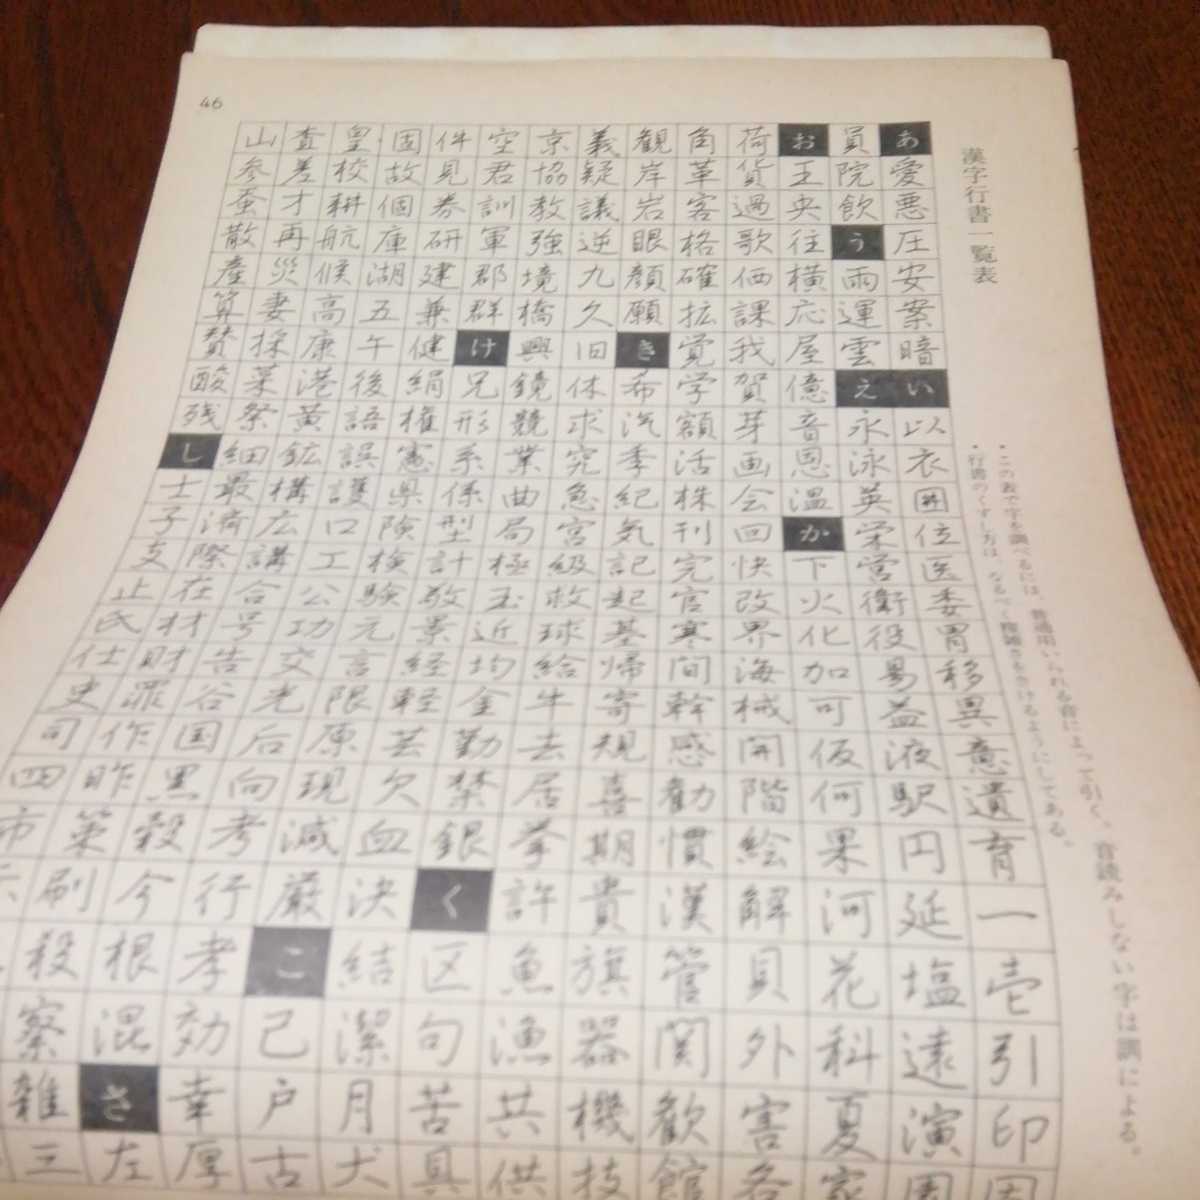 46
漢字行書一覧表
・この表で字を調べるには、普通用いられる音によって引く。音読みしない字は訓による。
・行書のくずし方は、なるべく複雑さをさけるようにしてある。
あ愛悪圧安案暗い以衣囲位医委胃移異意遺育一壱引印因
員院飲う雨運雲え永泳英栄営衛役易益液駅円延塩遠演園
お王央往横応屋億音恩温か下火化加可仮何果河花科夏家
荷貨過歌価課我賀芽画会回快改界海械開階絵解貝外害各
角革客格確拡覚学額活株刊完官寒間幹感勧慣漢管関歓館
観岸岩眼顔願き希汽季紀気記起基帰寄規喜期貴旗器機技
義疑議逆九久旧休求究急宮級救球給牛去居挙許魚漁共供
京協教強境橋興鏡競業曲局極玉近均金勤禁銀く区句苦具
空君訓軍郡群け兄形系係型計敬景経軽芸欠血決結潔月犬
件見券研建兼健絹権憲県険検験元言限原現減厳こ己戸古
固故個庫湖五午後語誤護口工公功交光后向考行孝効幸厚
皇校耕航候高康港黄鉱構広講合号告谷国黒穀今根混さ左
査差才再災妻採菜祭細最済際在材財罪作昨策刷殺察雑三
山参蚕散産算賛酸残し士子支止氏仕史司四市